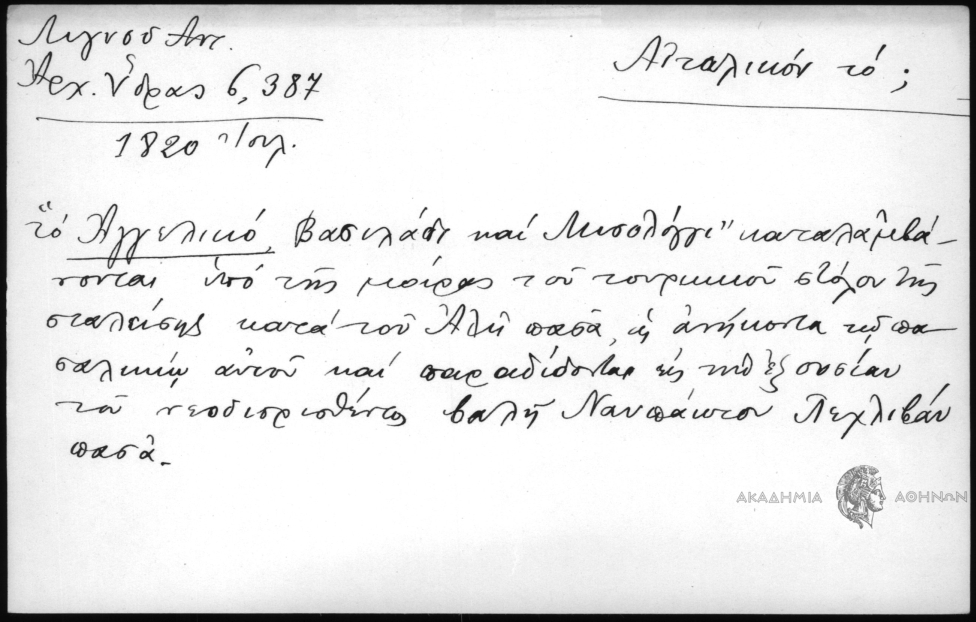 Λιγνού Αντ.
Αρχ. Ύδρας 6, 387
1820 Ιουλ.
Αιταλικόν τό ;
"τό Αγγελικό, Βασιλάδι καί Μισολόγγι" καταλαμβά-
νονται υπό της μοίρας τού τουρκικού στόλου της
σταλείσης κατά τού Αλή πασά, ως ανήκοντα τω πα-
σαλικίω αυτού καί παραδίδονται εις την εξουσίαν
τού νεοδιορισθέντος βαλή Ναυπάκτου Πεχλιβάν
πασά.
ΑΚΑΔΗΜΙΑ ΑΘΗΝΩΝ